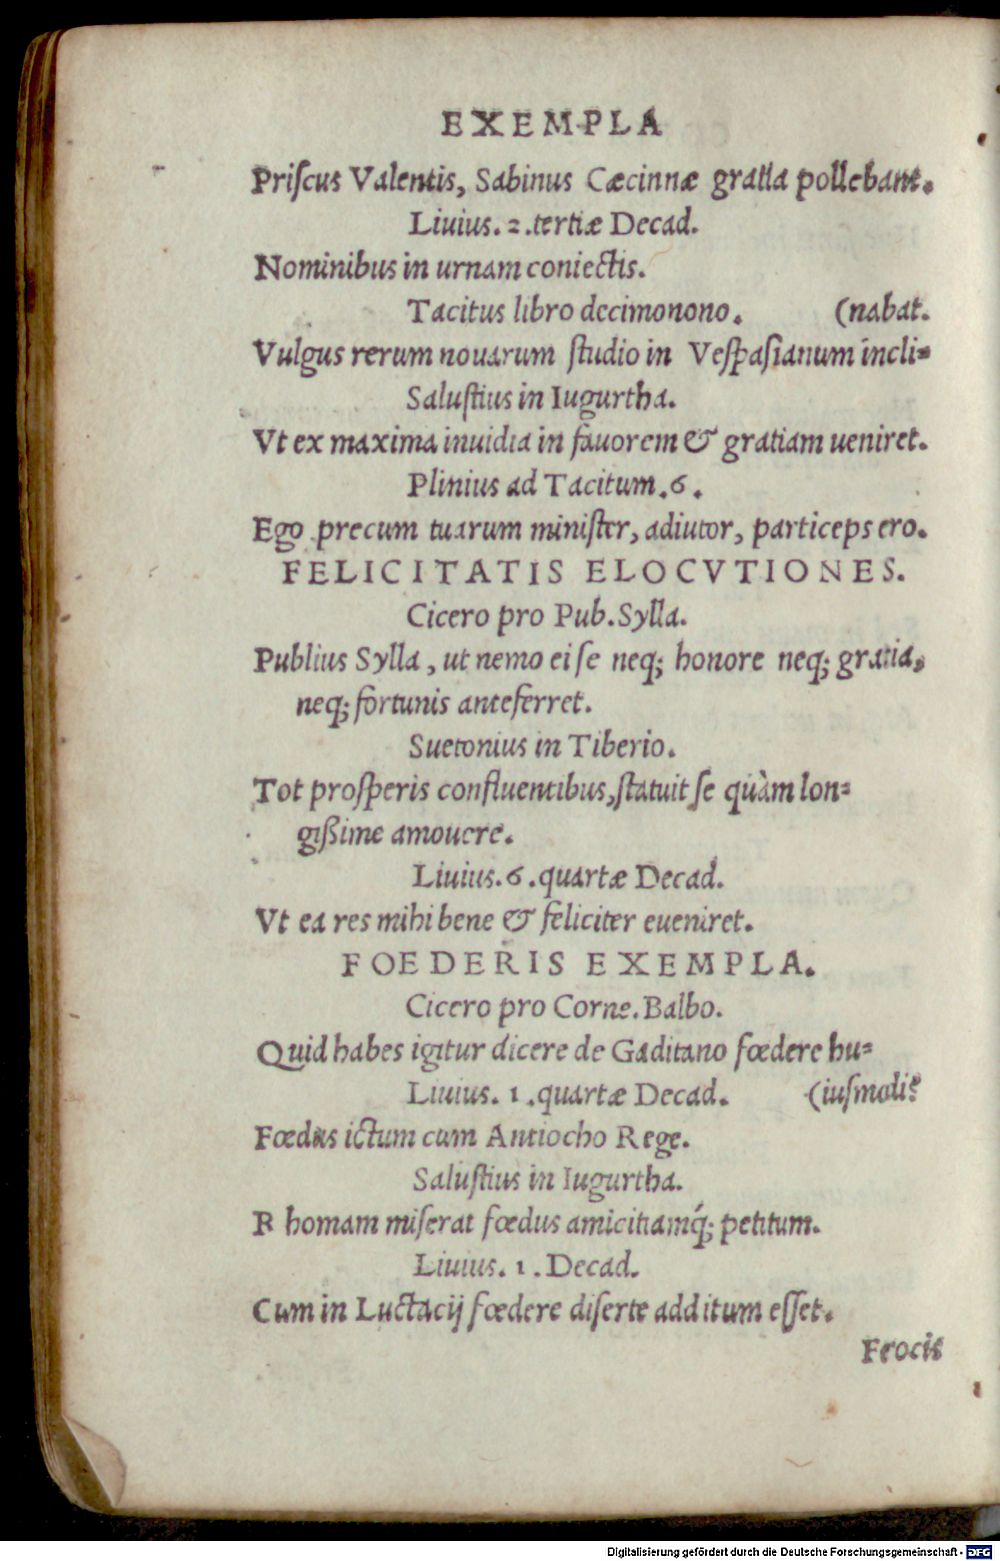 EXEMPLA
Priſcus Valentis, Sabinus Cæcinnæ gratia pollebant.
Liuius. 2. tertiæ Decad.
Nominibus in urnam coniectis.
Tacitus libro decimonono. (nabat.
Vulgus rerum nouarum ſtudio in Veſpaſianum incli=
Saluſtius in Iugurtha.
Vt ex maxima inuidia in fauorem & gratiam ueniret.
Plinius ad Tacitum. 6.
Ego precum tuarum miniſter, adiutor, particeps ero.
FELICITATIS ELOCVTIONES.
Cicero pro Pub. Sylla.
Publius Sylla, ut nemo ei ſe neq; honore neq; gratia,
neq; fortunis anteferret.
Suetonius in Tiberio.
Tot proſperis confluentibus, ſtatuit ſe quàm lon=
gißime amouere.
Liuius. 6. quartæ Decad.
Vt ea res mihi bene & feliciter eueniret.
FOEDERIS EXEMPLA.
Cicero pro Corne. Balbo.
Quid habes igitur dicere de Gaditano fœdere hu=
Liuius. 1. quartæ Decad. (iuſmodi?
Fœdus ictum cum Antiocho Rege.
Saluſtius in Iugurtha.
R homam miſerat fœdus amicitiamq́; petitum.
Liuius. 1. Decad.
Cum in Luctacij fœdere diſerte additum eſſet.
Ferocis
Digitalisierung gefördert durch die Deutsche Forschungsgemeinschaft - DFG